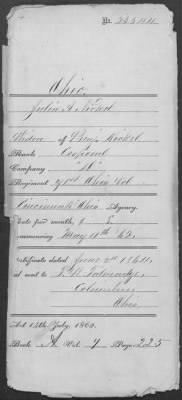 No.
Ohio.
Julia A Nickel
Widow of Benj. Nickel
Rank Corporal
Company "D"
Regiment 71st Ohio Vol
Cincinnati Ohio Agency.
Rate per month, $ 8
commencing May 11th 63.
Certificate dated June 2d 1864,
and sent to
Columbus
Ohio.
Act 14th July, 1862.
Book A Vol. 7 Page 225